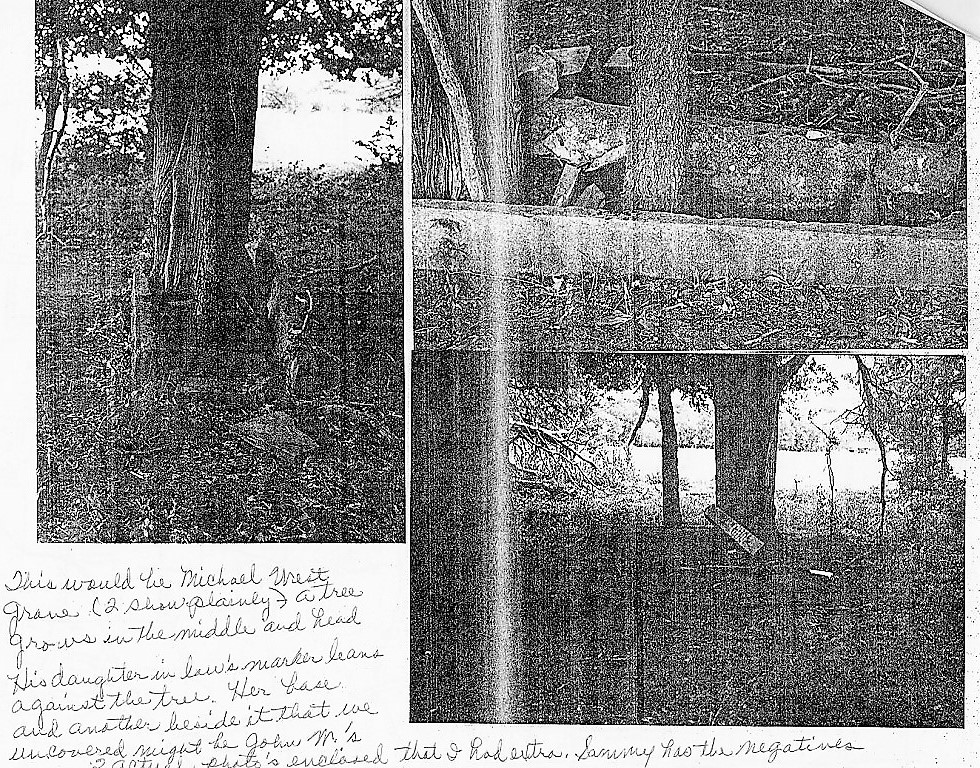 This would be Michael West
grave (2 show plainly) a tree
grows in the middle and head
His daughter in law's marker leans
against the tree. Her base
and another beside it that we
uncovered might be John M.'s
2 photo's enclosed that I had extra. Sammy has the negatives